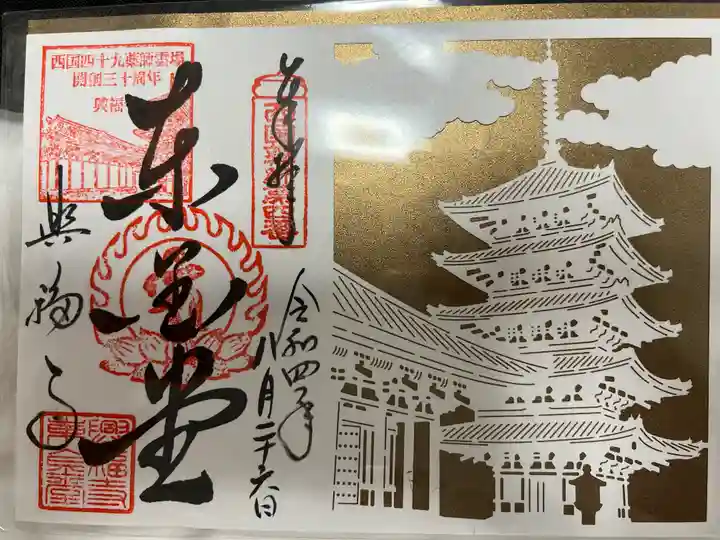 奉拝
令和四年
八月二十六日
東金堂
西国四十九薬師霊場
開創三十周年
興福寺
興福寺